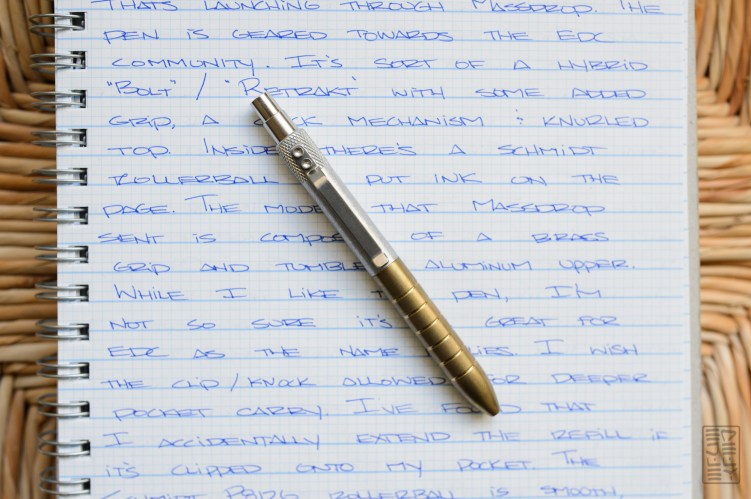 THAT'S LAUNCHING THROUGH MASSDROP. THE
PEN IS GEARED TOWARDS THE EDC
COMMUNITY. IT'S SORT OF A HYBRID
"BOLT" / "RETRAKT" WITH SOME ADDED
GRIP, A MECHANISM & KNURLED
TOP. INSIDE THERE'S A SCHMIDT
ROLLERBALL PUT INK ON THE
PAGE. THE MODEL THAT MASSDROP
SENT IS COMPOS OF A BRASS
GRIP AND TUMBLE ALUMINUM UPPER.
WHILE I LIKE PEN, I'M
NOT SO SURE IT'S GREAT FOR
EDC AS THE NAME LIES. I WISH
THE CLIP/KNOCK ALLOWED FOR DEEPER
POCKET CARRY. I'VE FOUND THAT
I ACCIDENTALLY EXTEND THE REFILL IF
IT'S CLIPPED ONTO MY POCKET. THE
SCHMIDT P8126 ROLLERBALL IS SMOOTH